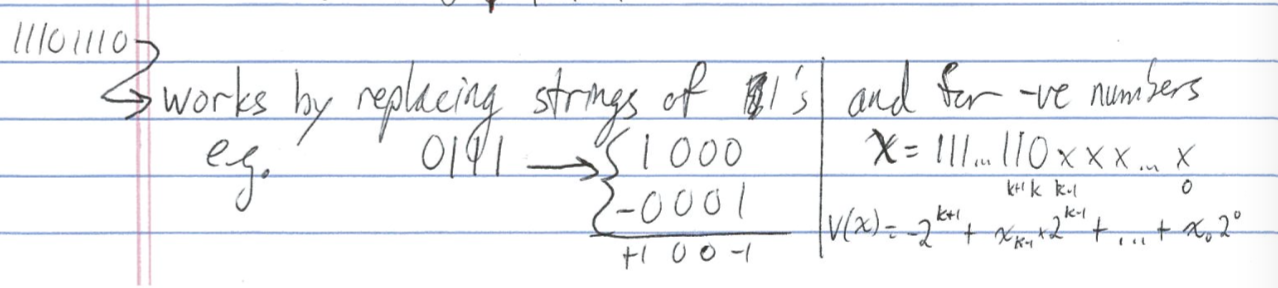 11101110
works by replacing strings of 1's
e.g. 0111 → { 1 000
-0001
+1 0 0 -1
and for -ve numbers
X = 111...110xxx...x
k+1 k k-1 0
V(x) = -2^{k+1} + x_{k-1}*2^{k-1} + ... + x_0 2^0